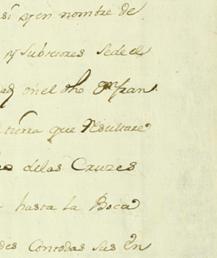 así y en nombre de
y Subcesores sede el
en el dho
tierra que Resultare
de las Cruzes
hasta la Boca
Con todas sus en